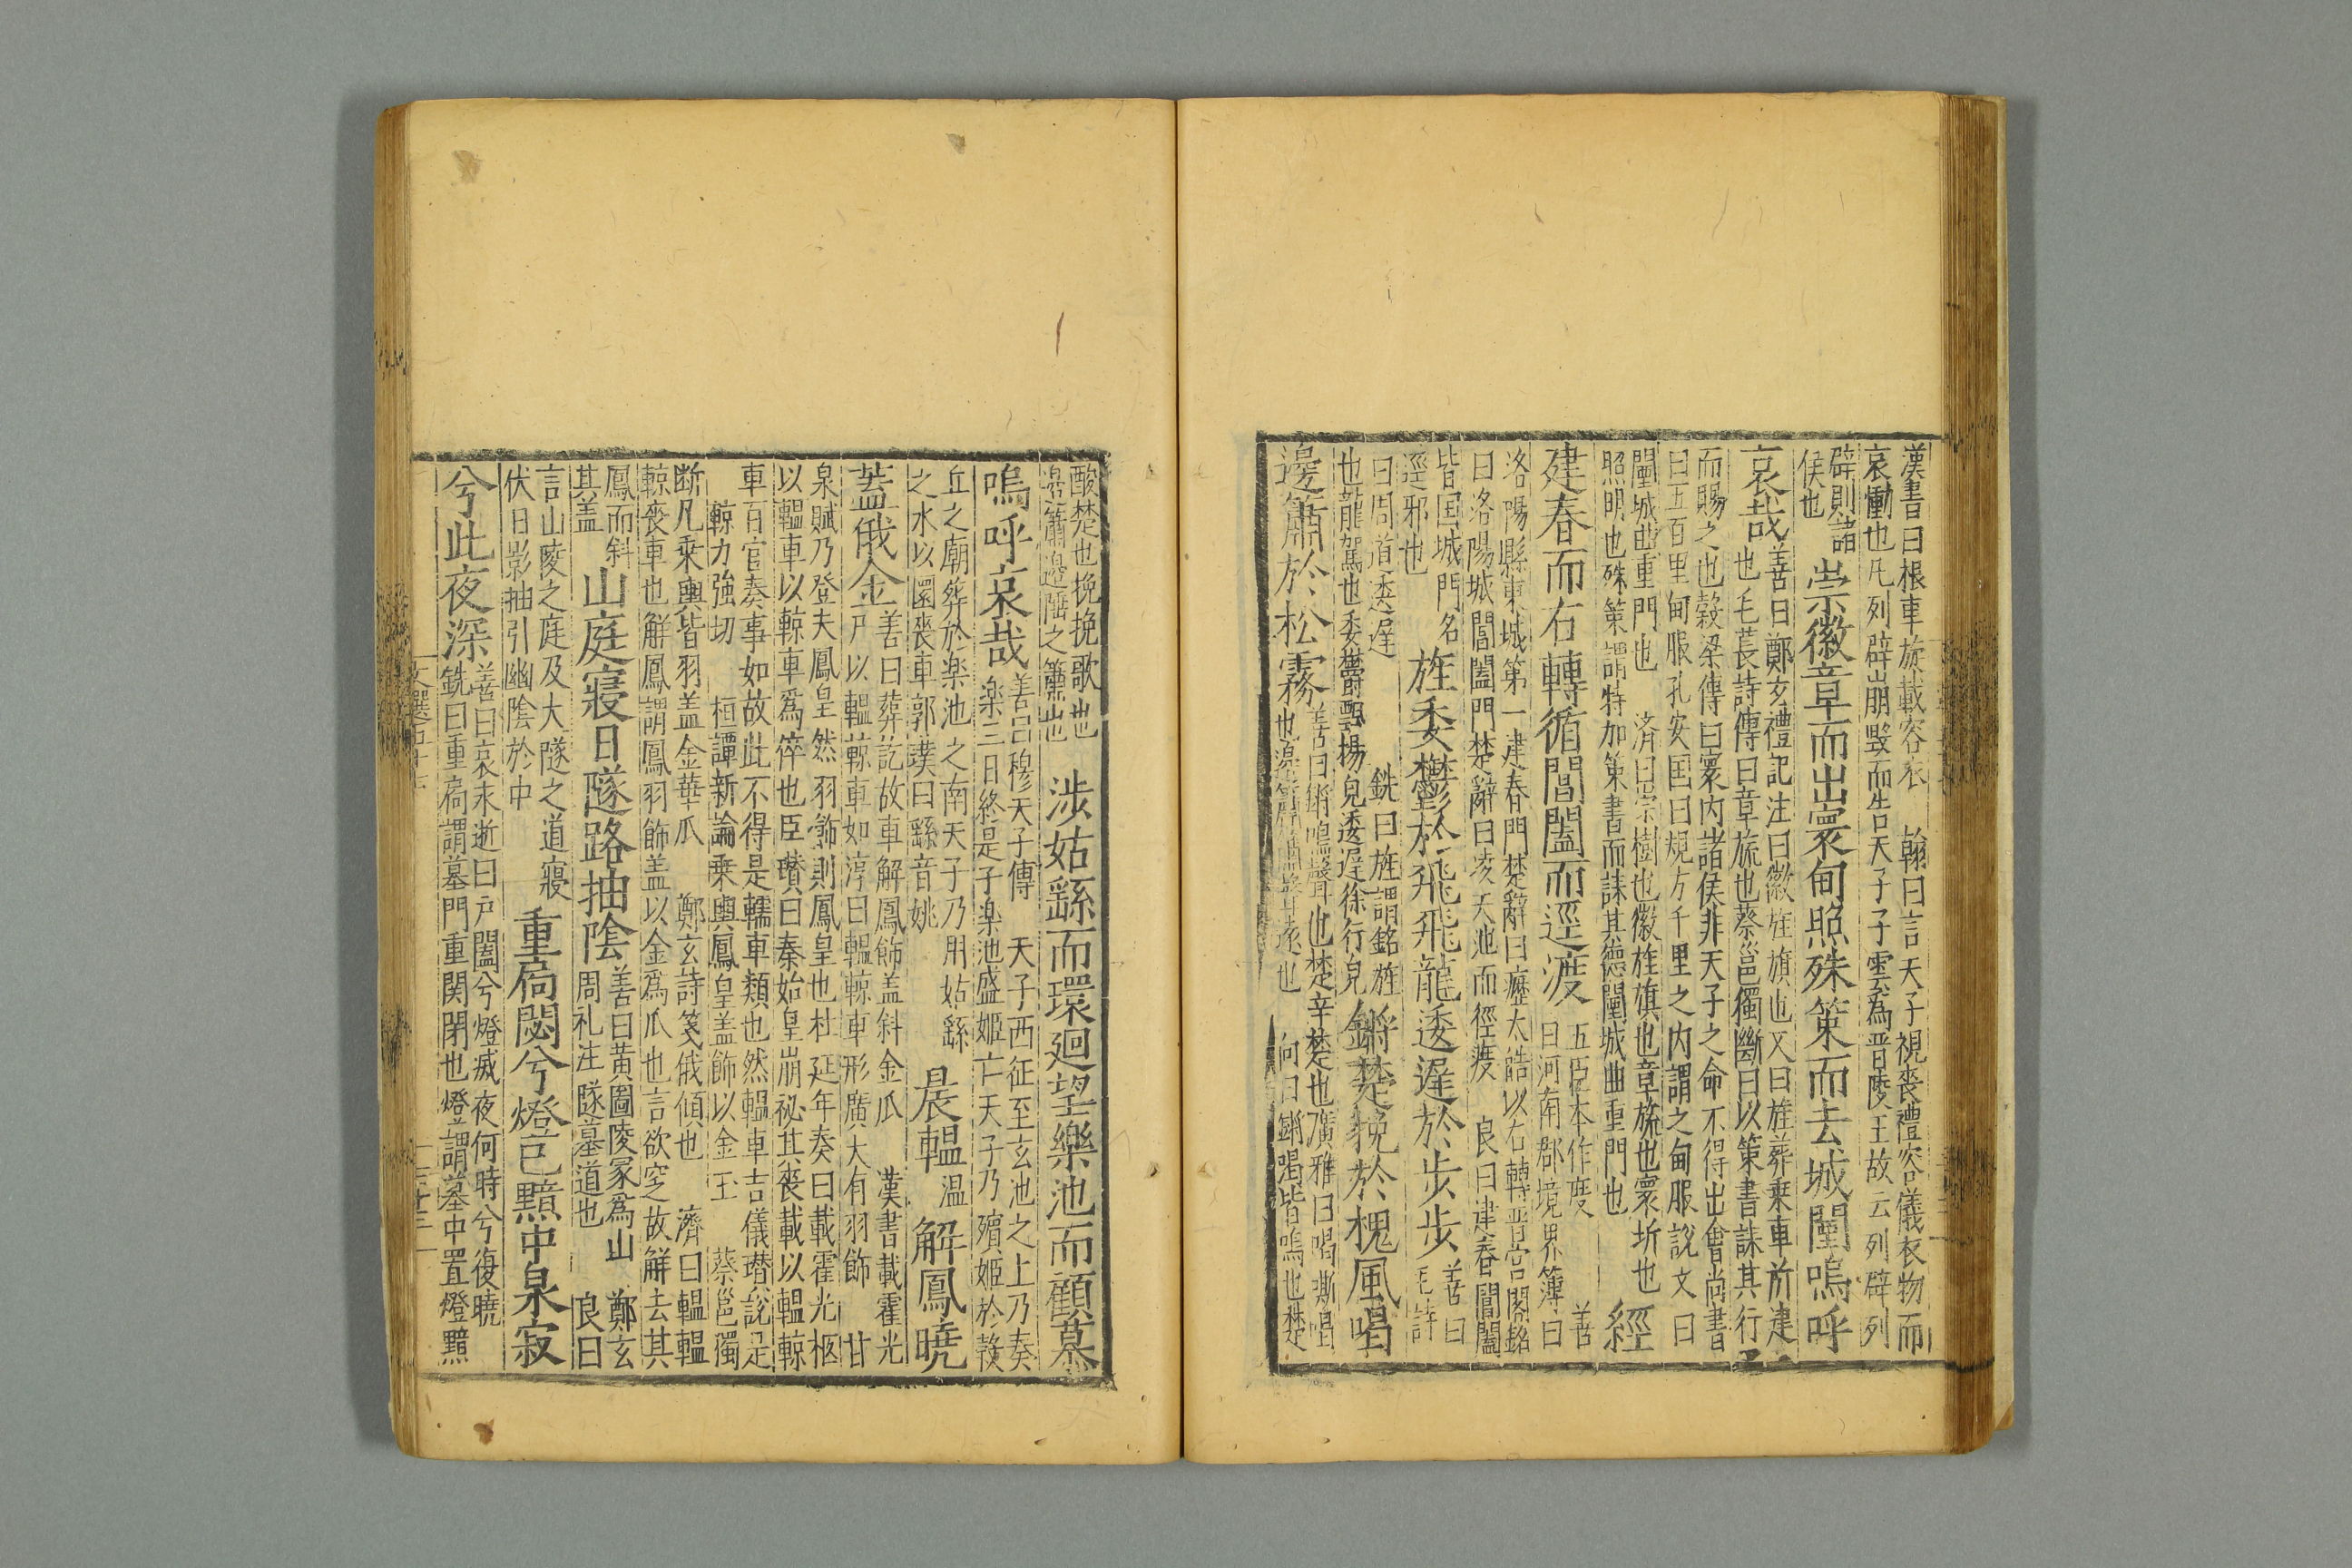 漢書曰根車旋載容衣　翰曰言天子視喪禮容儀衣物而
哀慟也凡列辟崩毀而告天子子雲為晋陵王故云列辟列
辟則諸
侯也
崇徽章而出寰甸照殊策而去城闉嗚呼
哀哉
善曰鄭玄禮記注曰徽旌旗也又曰旌葬乗車所建
也毛萇詩傳曰章旒也蔡邕獨斷曰以策書誄其行
而賜之也穀梁傳曰寰内諸侯非天子之命不得出會尚書
曰五百里甸服孔安国曰規方千里之内謂之甸服說文曰
闉城曲重門也　済曰崇樹也徽旌旗也章旒也寰圻也
照明也殊策謂特加策書而誄其德闉城曲重門也
經
建春而右轉循閶闔而逕渡
五臣本作度　善
曰河南郡境界簿曰
洛陽縣東城第一建春門楚辭曰歷太皓以右轉晋宫閣銘
曰洛陽城閶闔門楚辭曰凌天池而徑渡　良曰建春閶闔
皆国城門名
逕邪也
旌委欝於飛飛龍逶遲於步步
善曰
毛詩
曰周道逶遲　銑曰旌謂銘旌
也龍駕也委欝飄揚皃逶遲徐行皃
鏘楚挽於槐風喝
邊簫於松霧
善曰鏘鳴聲也楚辛楚也廣雅曰喝嘶喝
也　向曰鏘喝皆鳴也楚
酸楚也挽挽歌也
邊簫邊陲之簫也
涉姑繇而環廻望樂池而顧慕
嗚呼哀哉
善曰穆天子傳　天子西征至玄池之上乃奏
楽三日終是子楽池盛姬亡天子乃殯姬於穀
丘之廟葬於楽池之南天子乃用姑繇
之水以圜喪車郭璞曰繇音姚
晨轀
温
解鳳曉
蓋俄金
善曰葬訖故車解鳳飾盖斜金瓜　漢書載霍光
尸以轀輬車如淳曰轀輬車形廣大有羽飾　甘
泉賦乃登夫鳳皇然羽飾則鳳皇也杜延年奏曰載霍光柩
以轀車以輬車爲倅也臣瓚曰秦始皇崩祕其喪載以轀輬
車百官奏事如故此不得是轜車類也然轀車吉儀瓚說是
輬力強切　桓譚新論乗輿鳳皇盖飾以金玉　蔡邕獨
断凡乗輿皆羽盖金華爪　鄭玄詩箋俄傾也　濟曰轀轀
輬喪車也解鳳謂鳳羽飾盖以金爲爪也言欲空故解去其
鳳而斜
其盖
山庭寢日隧路抽陰
善曰黄圖陵冢為山　鄭玄
周礼注隧墓道也　良曰
言山陵之庭及大隧之道寢
伏日影抽引幽陰於中
重扃閟兮燈已黯中泉寂
兮此夜深
善曰哀末逝曰戸闔兮燈滅夜何時兮復曉
銑曰重扃謂墓門重関閉也燈謂墓中置燈黯